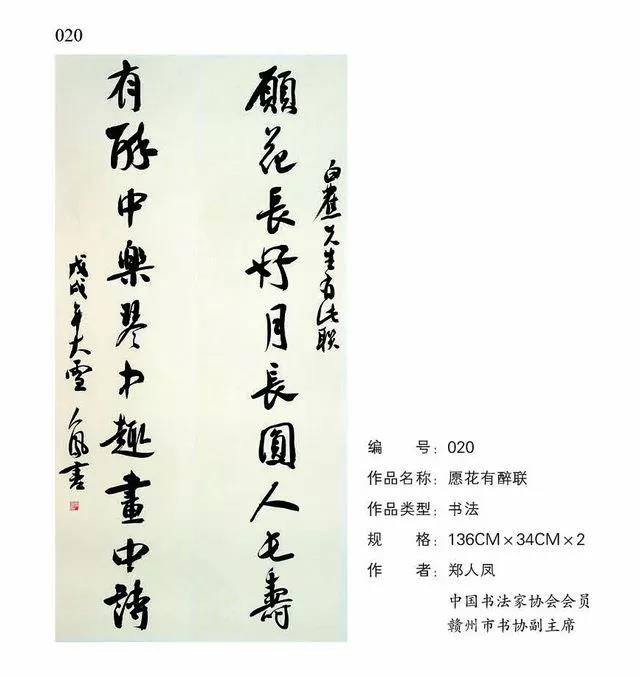 020
白蕉先生有此联
願花長好月長圓人长壽
有酔中樂琴中趣畫中詩
戊戌年大雪 人凤書
编 号：020
作品名称：愿花有醉联
作品类型：书法
规 格：136CM×34CM×2
作 者：郑人凤
中国书法家协会会员
赣州市书协副主席